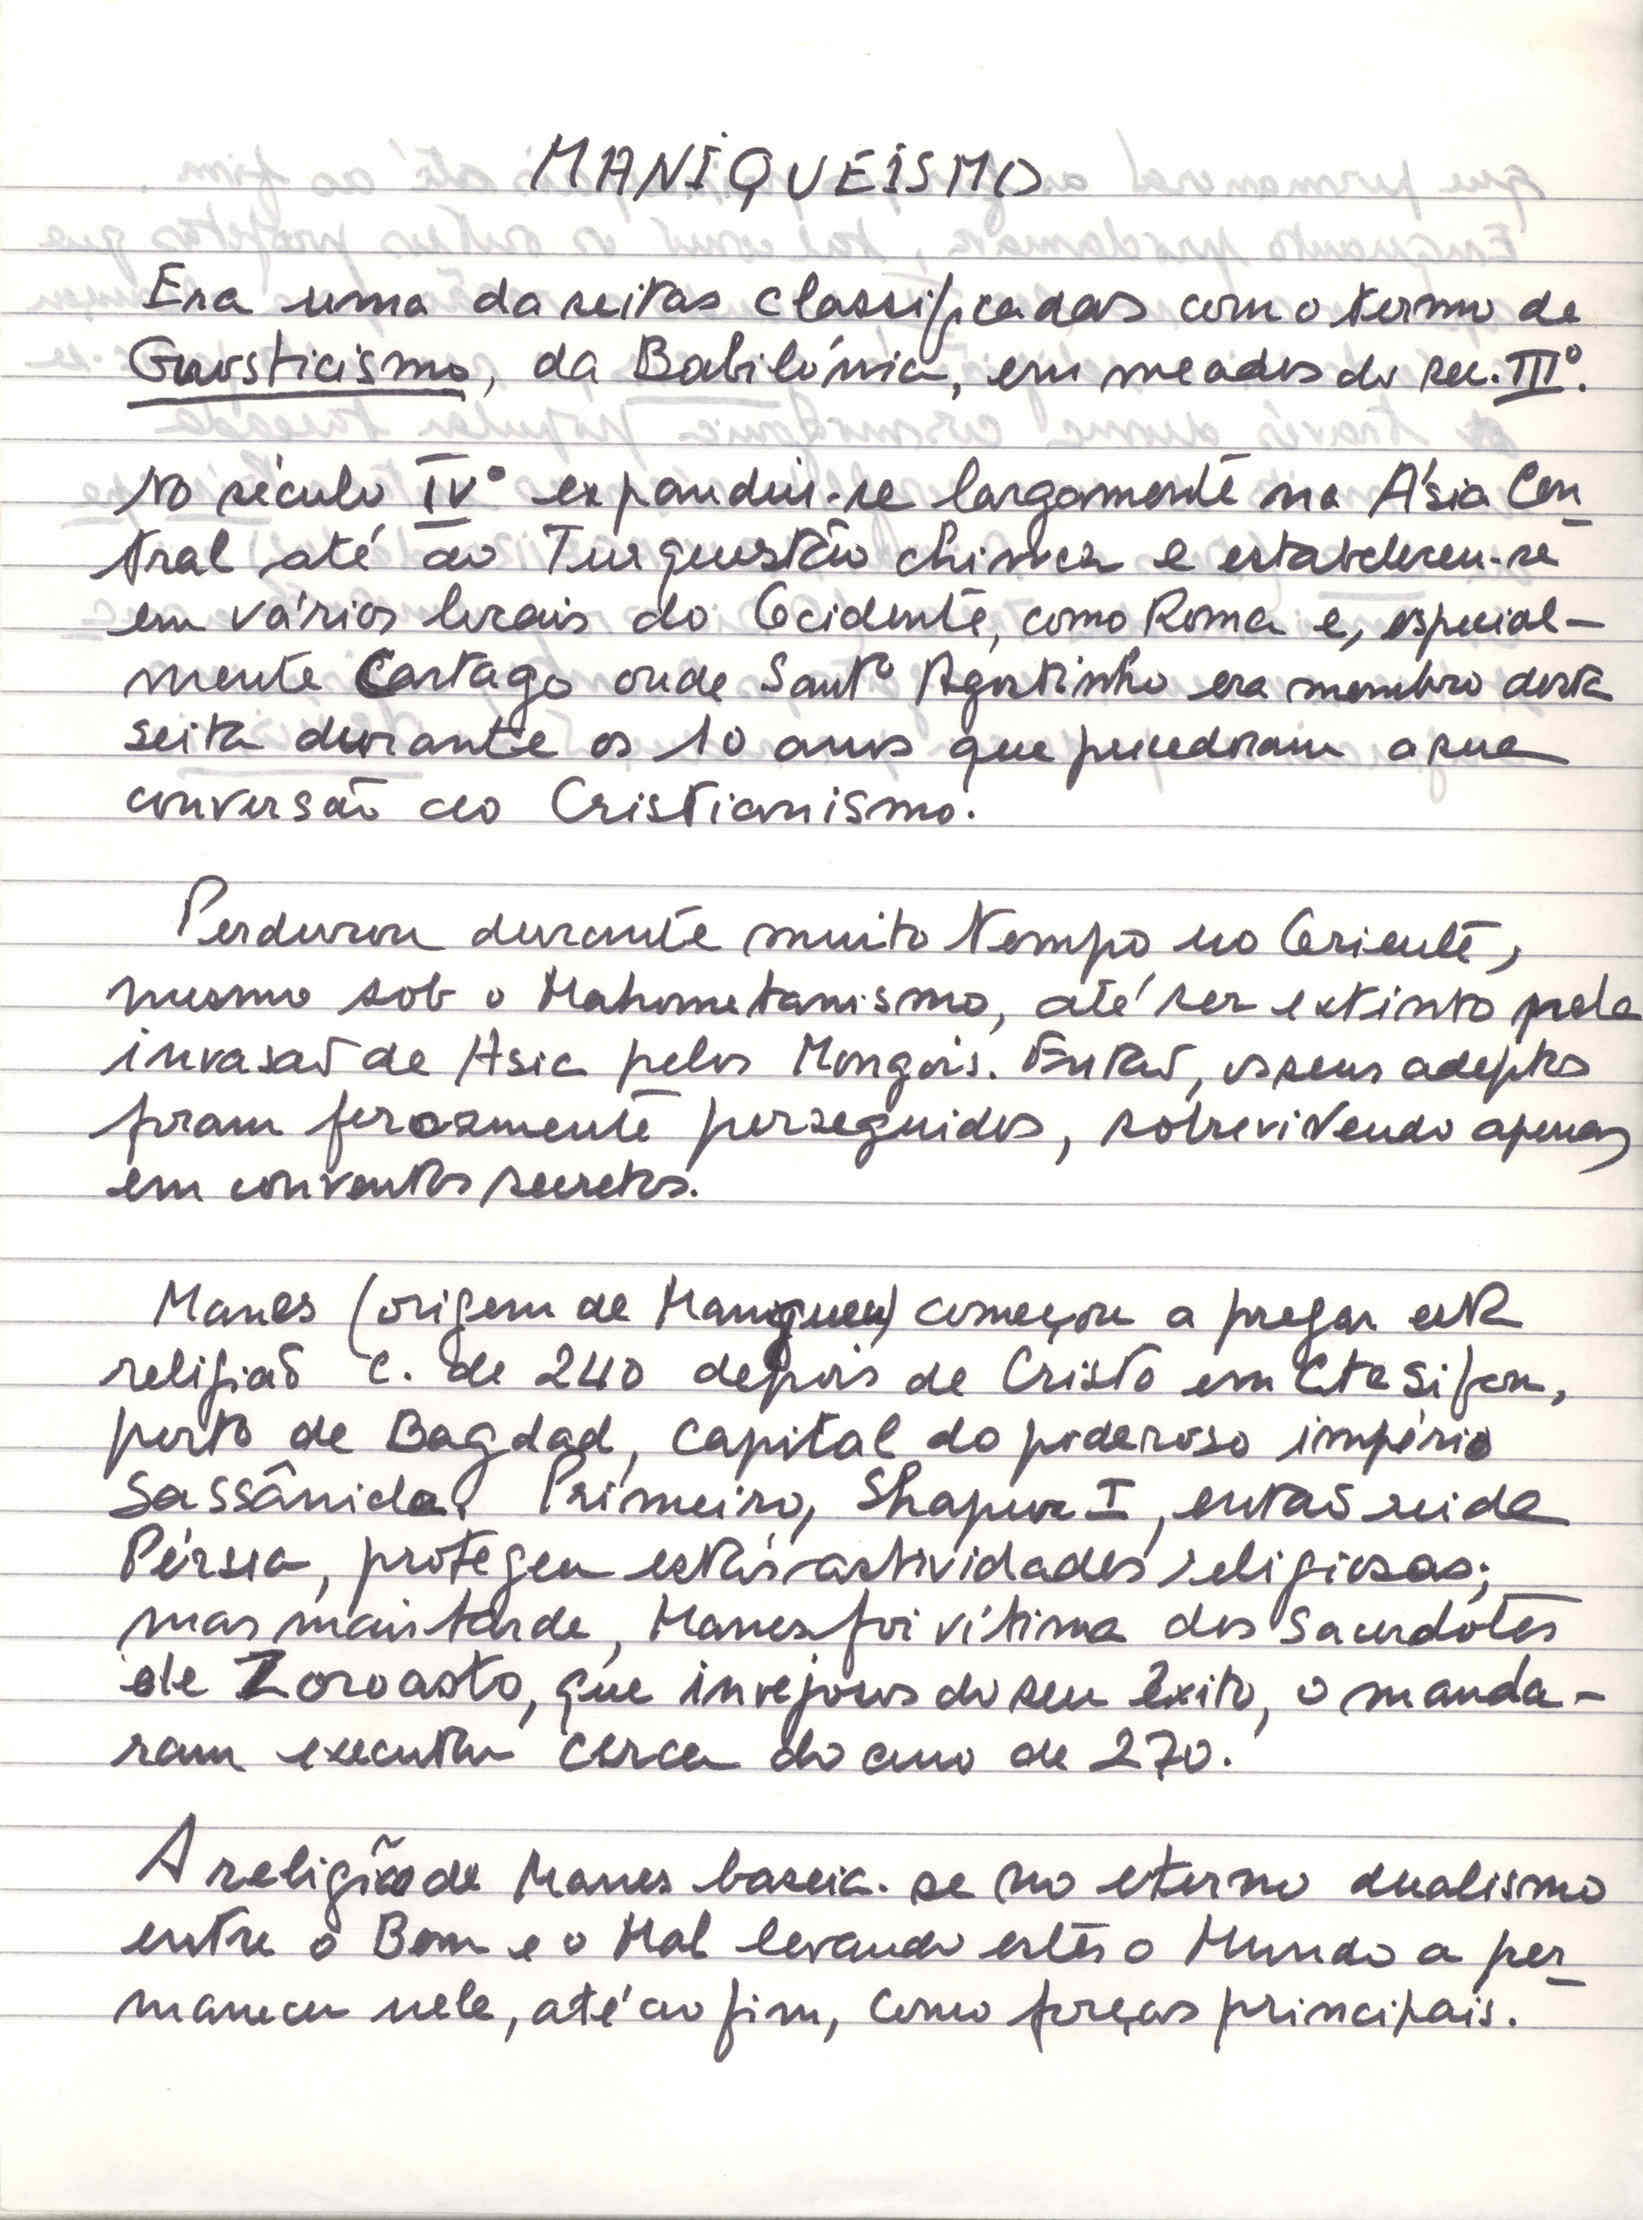 MANIQUEÍSMO
Era uma da seitas classificadas com o termo de
Gnosticismo, da Babilónia, em meados do sec. IIIº.
No século IVº expandiu-se largamente na Ásia Cen_
tral até ao Turquestão chinca e estabeleceu-se
em vários locais do Ocidente, como Roma e, especial-
mente Cartago onde Santº Agostinho era membro desta
seita durante os 10 anos que precederam a sua
conversão ao Cristianismo.
Perdurou durante muito tempo no Oriente,
mesmo sob o Mahometanismo, até ser extinto pela
invasão de Asia pelos Mongois. Então, os seus adeptos
foram ferozmente perseguidos, sobrevivendo apenas
em conventos secretos.
Manes (origem de Maniqueu) começou a pregar esta
religião c. de 240 depois de Cristo em Ctesifon,
perto de Bagdad, capital do poderoso império
Sassânida. Primeiro, Shapur I, então rei da
Pérsia, protegeu estas actividades religiosas;
mas mais tarde, Manes foi vítima dos Sacerdotes
de Zoroasto, que invejosos do seu êxito, o manda-
ram executar cerca do ano de 270.
A religião de Manes baseia-se no eterno dualismo
entre o Bem e o Mal levando estes o Mundo a per_
manecer nele, até ao fim, como forças principais.